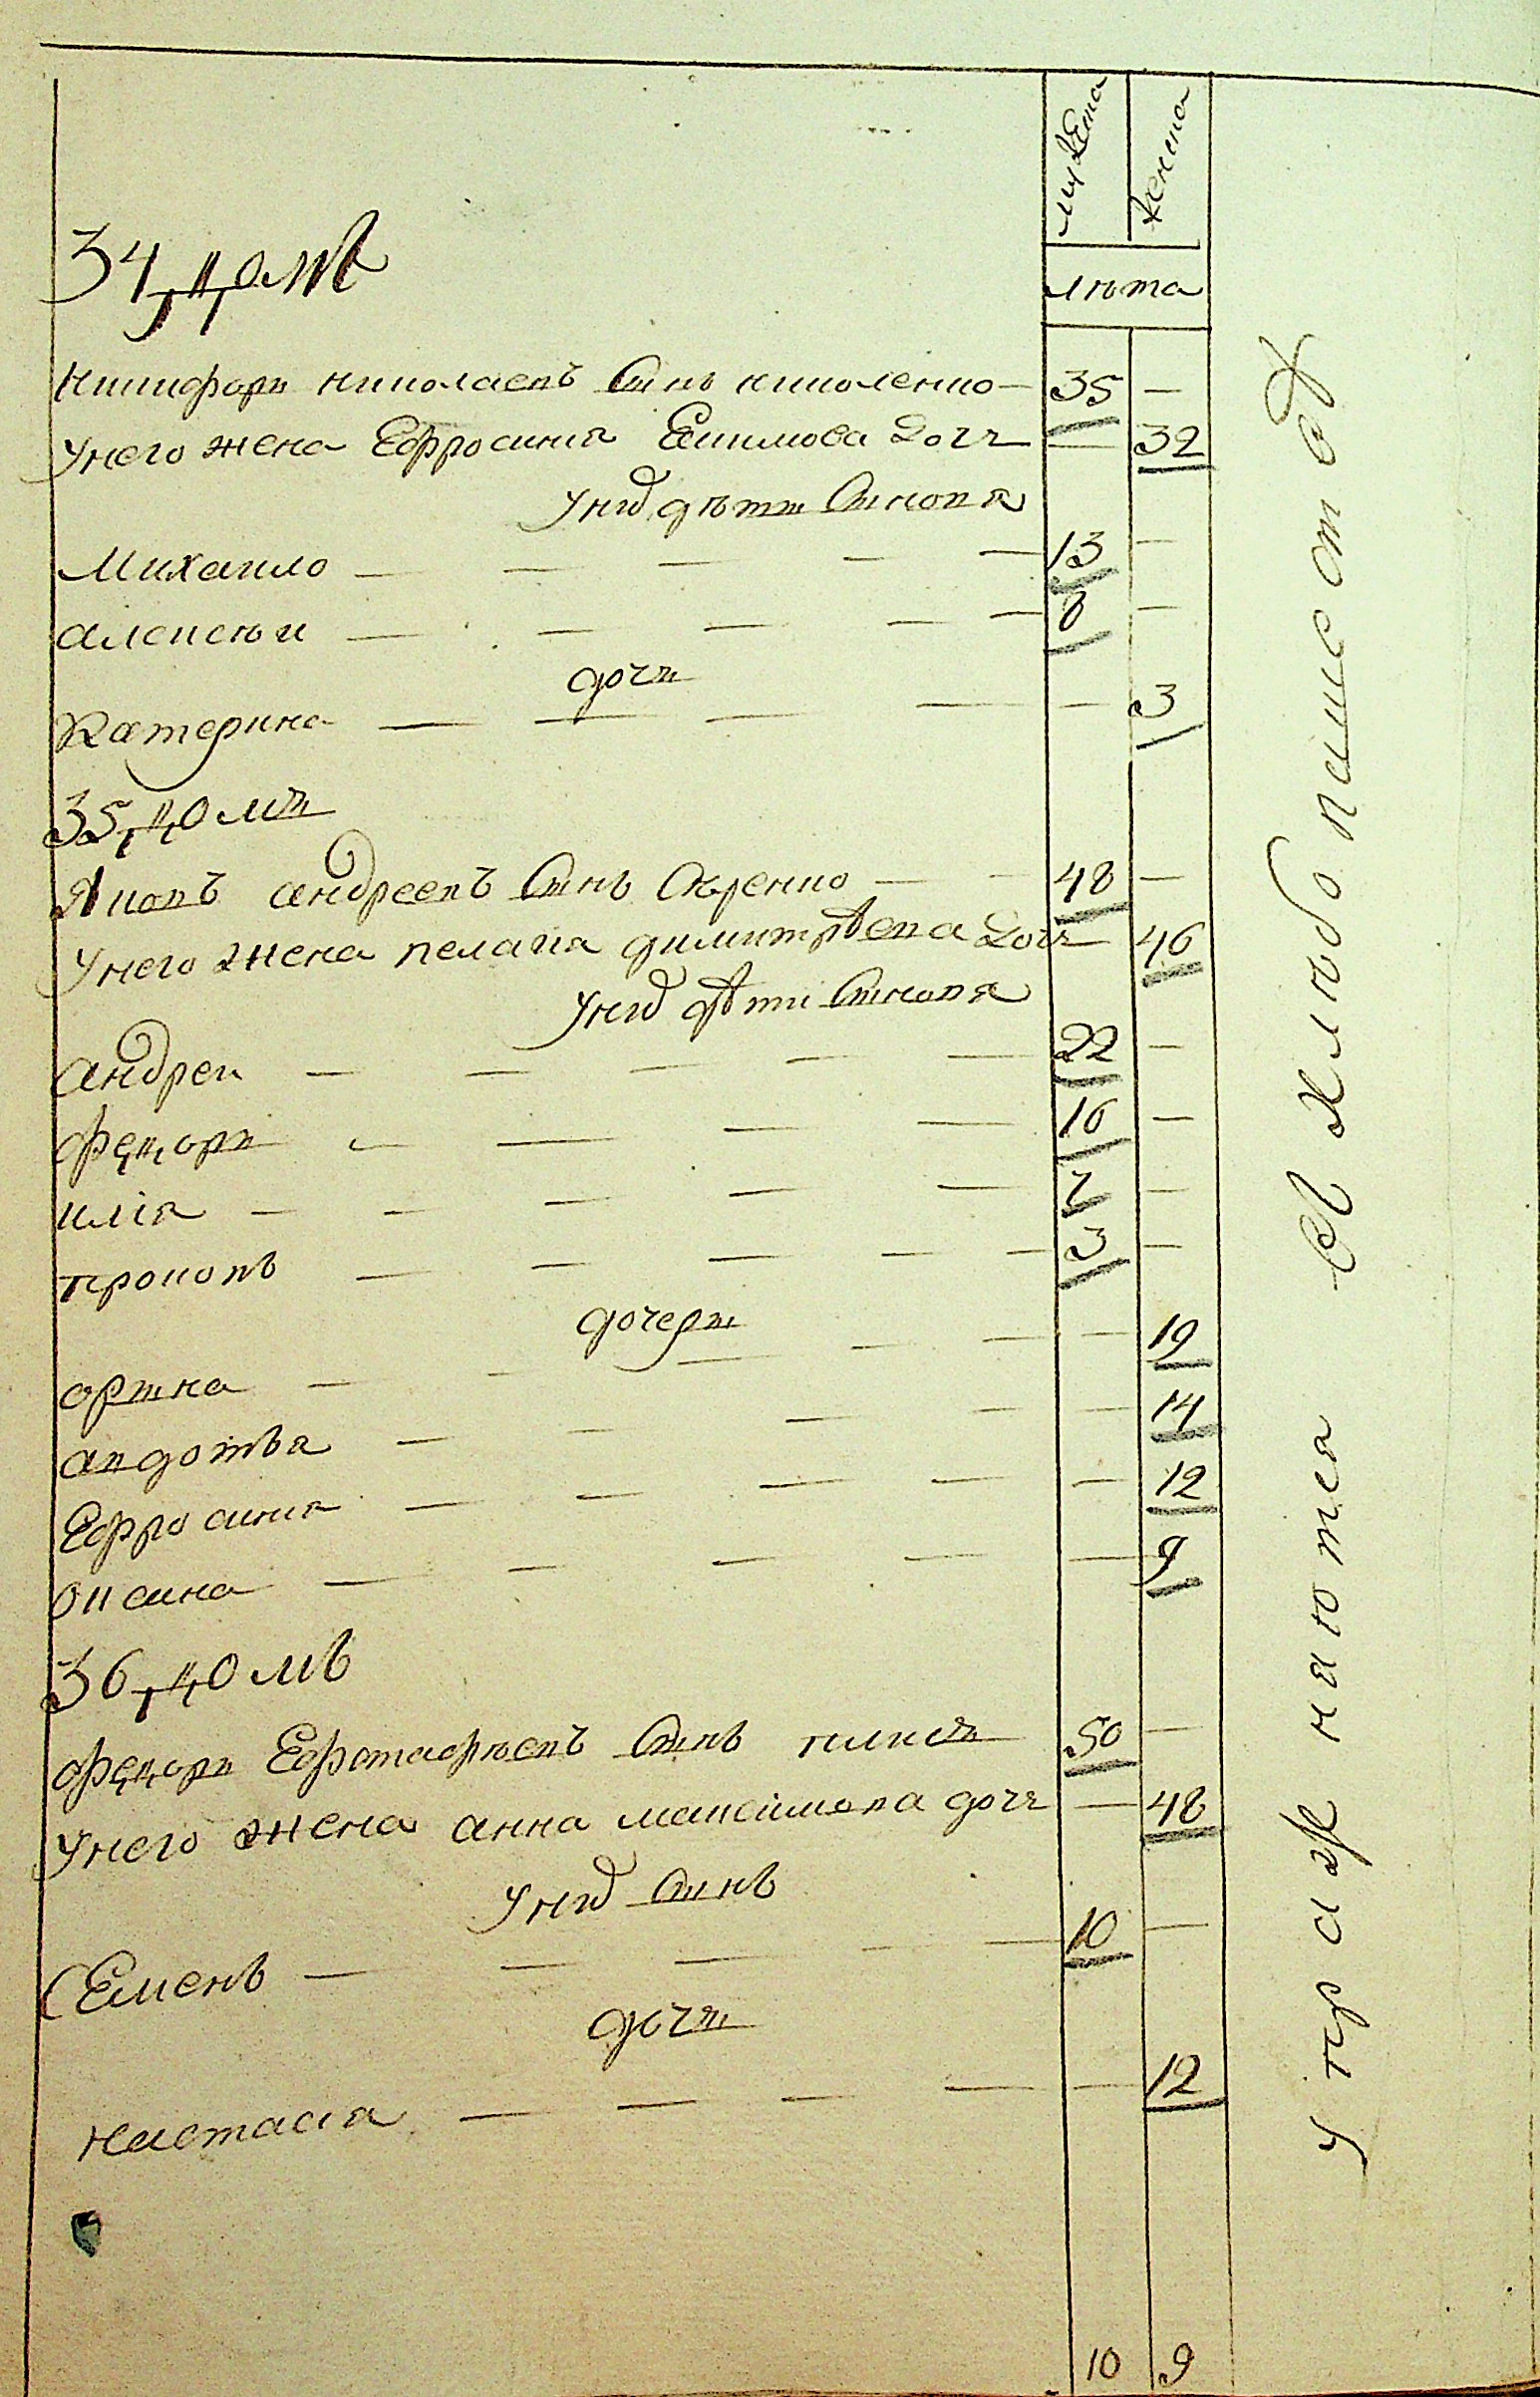 мужеска женска
лѣта
34 домъ
Никифоръ николаевъ Сынъ николенко — 35 —
Унего жена Ефросиния Екимова дочь — 32
Унихъ дѣти Сыновя
Михаило — — — — — 13 —
алексѣи — — — — — 8 —
дочь
Катерина — — — — — 3
35 домъ
Яковъ андреевъ Сынъ Окренко — — 48 —
Унего жена пелагия димитрѣева дочь 46
Унихъ дѣти Сыновя
андреи — — — — — 22 —
федоръ — — — — 16 —
илия — — — — — 7 —
прокопъ — — — — — 3 —
дочери
орина — — — — — — 19
авдотья — — — — — 14
Ефросиния — — — — — 12
оксина — — — — — 9
36 домъ
федоръ Ефстафѣевъ Сынъ 50 —
Унего жена анна максимова дочь — 48
Унихъ Сынъ
Семенъ — — — — — 10 —
дочь
настасия — — — — — 12
10 9
упражняются в хлѣбопашеств